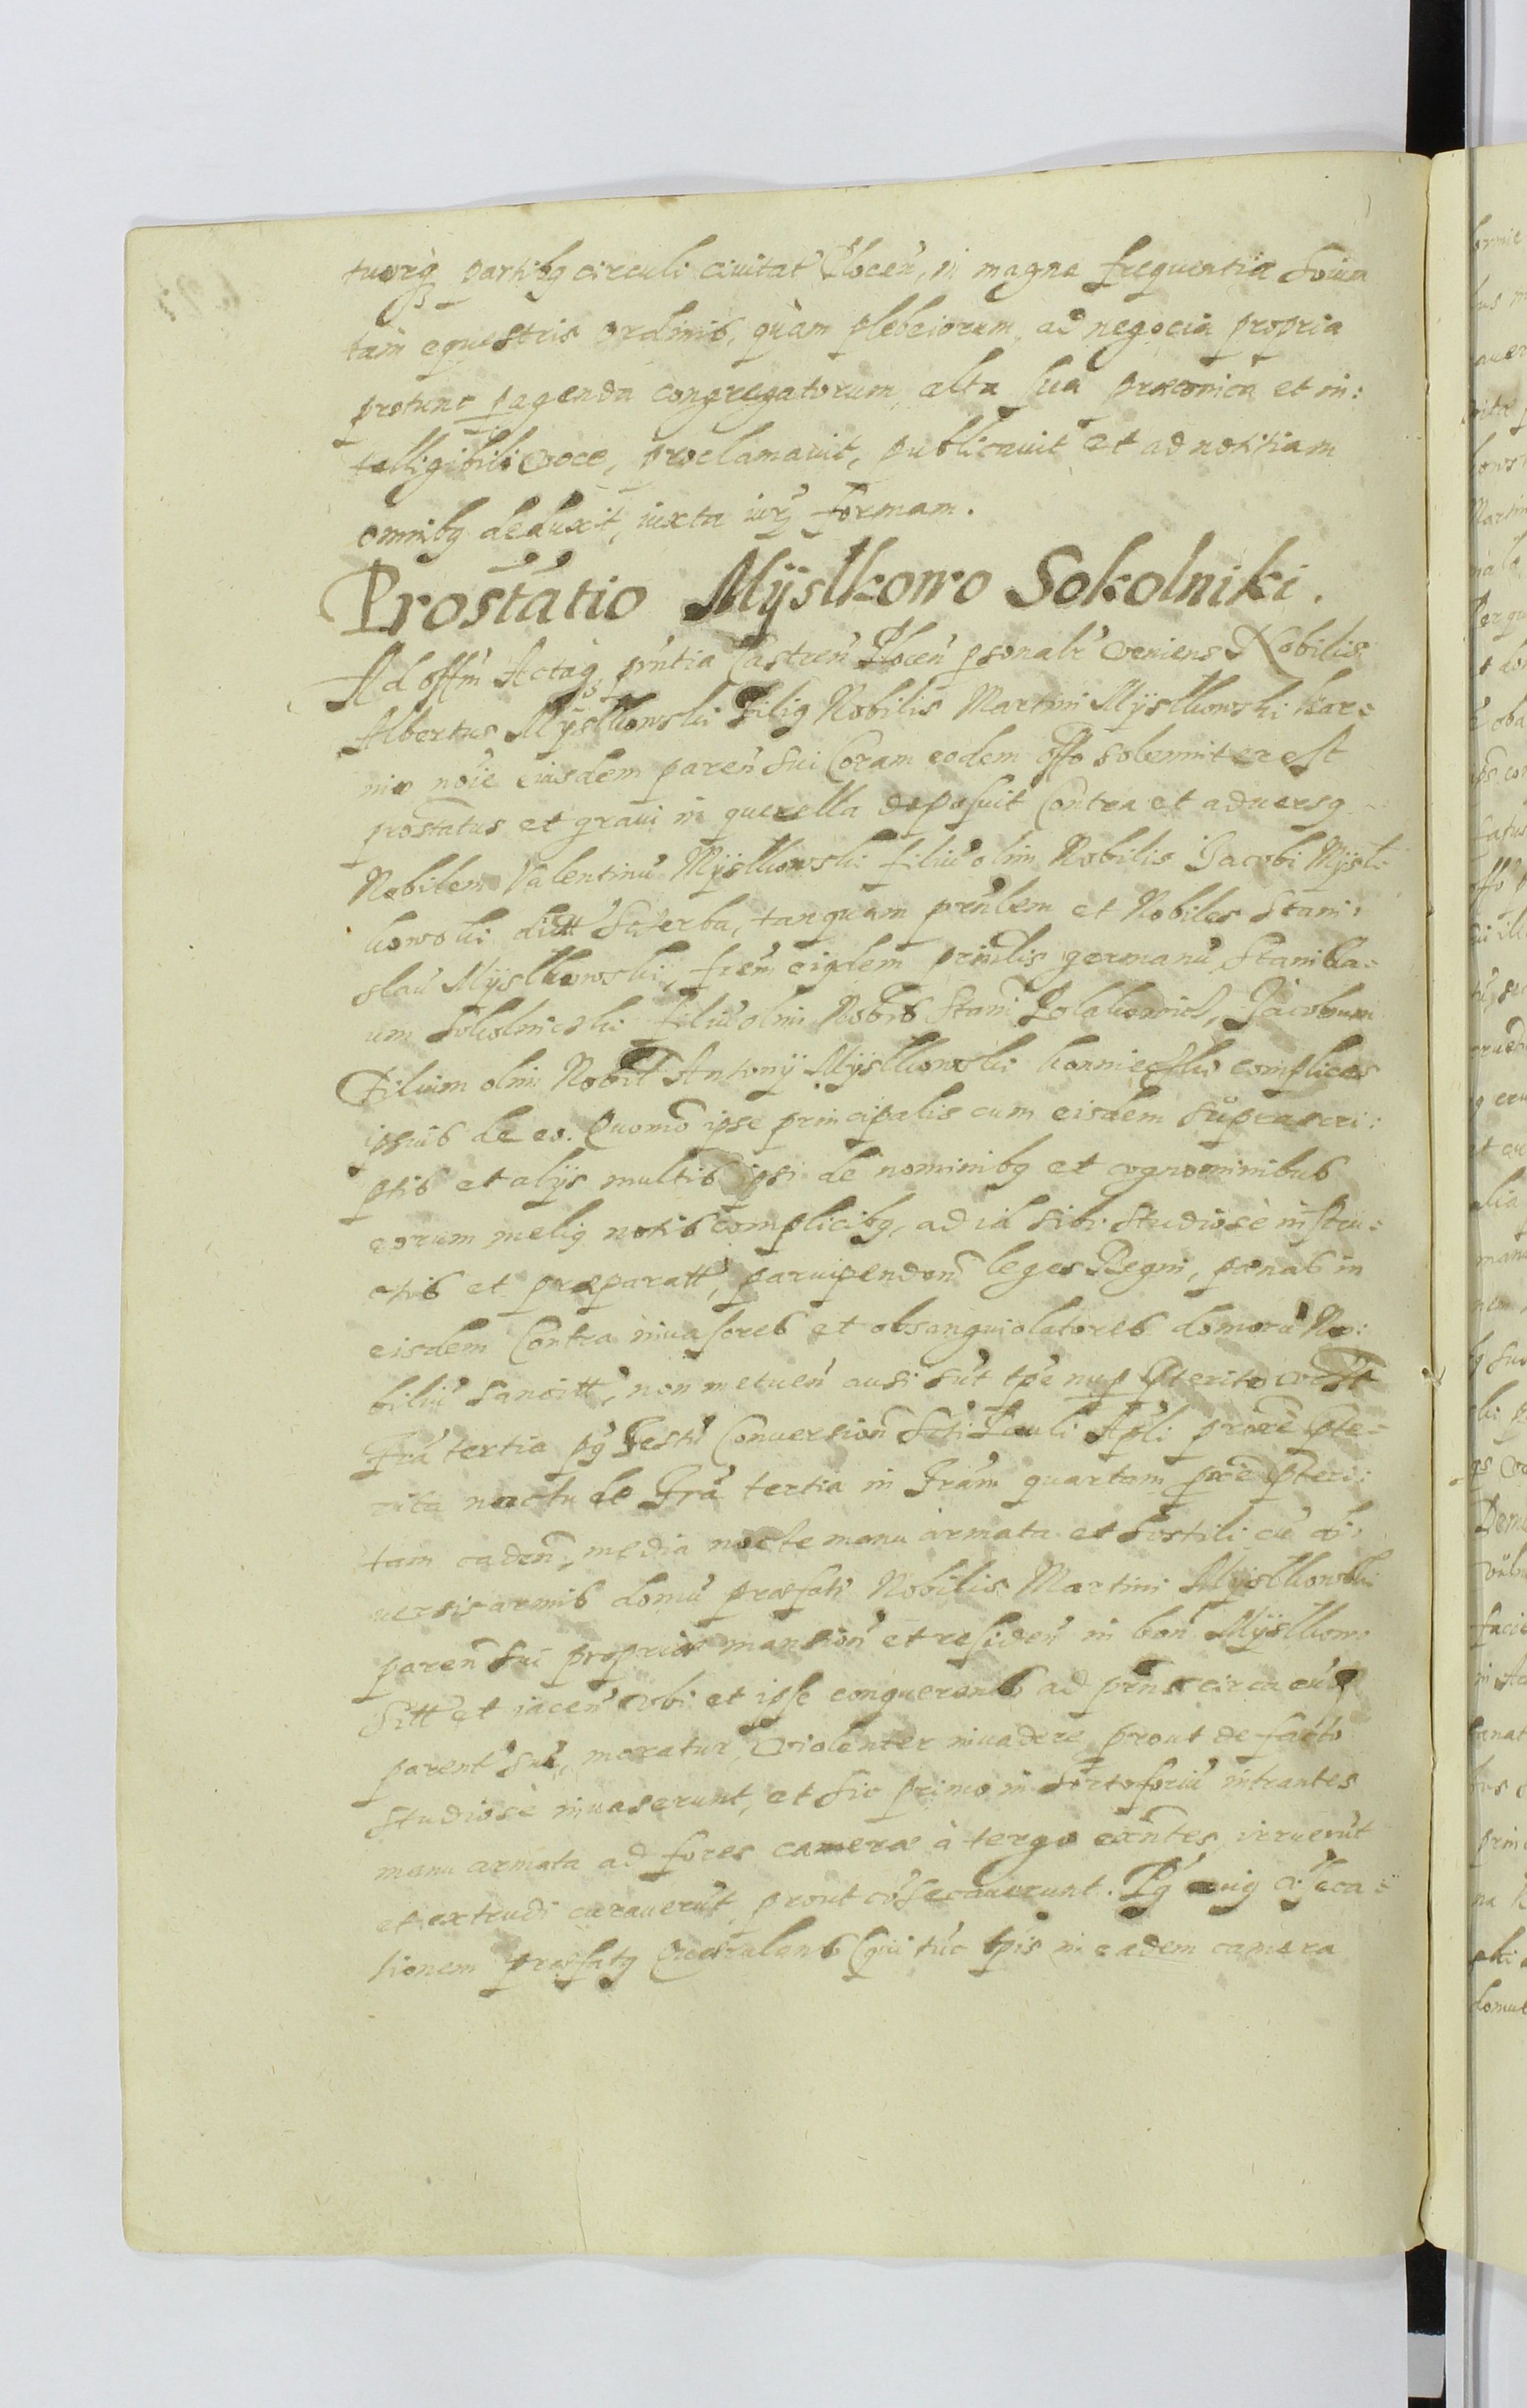 partibq circuli ciuitat Plocen, in magna frequentia
tàm equestris ordinis, quàm plebeiorum, ad negocia propria
protunc pagenda congregatorum alta sua praeconica et in:
telligibili voce, proclamauit, publicauit et ad notitiam
omnibq deduxit, iuxta iurÿ formam.
Prostatio Mÿslkowo Sokolniki.
Ad offm Actaq pntia Castren Plocen psonalr veniens Nobilis
Albertus Mÿslkowski Filiq Nobilis Martini Mÿslkowski
noie eiusdem paren sui Coram eodem offo solemniter est
prostatus et graui in querella deposuit Contra et aduersq
Nobilem Valentinu Mÿslkowski filiu olim Nobilis Jacobi Mÿsl-
kowski dictt tanquam prnlem et Nobiles Stani:
slau Mÿslkowski, frem eiqdem prinlis germanu Stanisla=
um Sokolnicski filiu olim Nobis Stani Jacobum
Filium olim Nobil Antonÿ Mÿslkowski complices
ipsius de eo. Quomo ipse principalis cum eisdem suprascri:
ptis et alÿs multis ipsi de nominibq et cognominibus
eorum meliq notis complicibq, ad id sibi studiosè instru=
ctis et praeparatt, paruipenden leges Regni, paenas in
eisdem Contra inuasores et obsanguiolatores domoru No:
biliu sancitt, non metuen ausi sut tpe nup pterito
Fria tertia pq Festu Conuersion Scti Pauli Apli proxe pte=
rita noctu de Fria tertia in Friam quartam pxe pteri:
tam caden, media nocte manu armata et hostili cu di:
uersis armis domu praefati Nobilis Martini Mÿslkowski
paren sui propriae mansion et residen in bon Mÿslkowo
sitt et iacen vbi et ipse conquerens ad pns circa
parent suu, moratur, violenter inuadere, prout de facto
studiosè inuaserunt, et sic primo in intrantes
manu armata ad fores camerae à tergo exntes irruerut
et extrudi curauerut prout
sionem praefatq Querulans qui tuc tpis in eadem camera